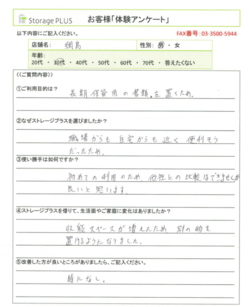 Storage PLUS お客様「体験アンケート」
以下内容にご記入ください。 FAX番号:03-3500-5944
店舗名: 綱島 性別: 男・女
年齢:
20代・30代・40代・50代・60代・70代・答えたくない
《ご質問内容》
①ご利用目的は?
長期保管用の書類を置くため。
②なぜストレージプラスを選びましたか?
職場からも自宅からも近く便利そう
だったため。
③使い勝手は如何ですか?
初めての利用のため 他社との比較はできませんが
良いと思います。
④ストレージプラスを借りて、生活面やご家庭に変化はありましたか?
収納スペースが増えたため 別の物を
置けるようになりました。
⑤改善した方が良いところがありましたら、ご記入ください。
特になし。